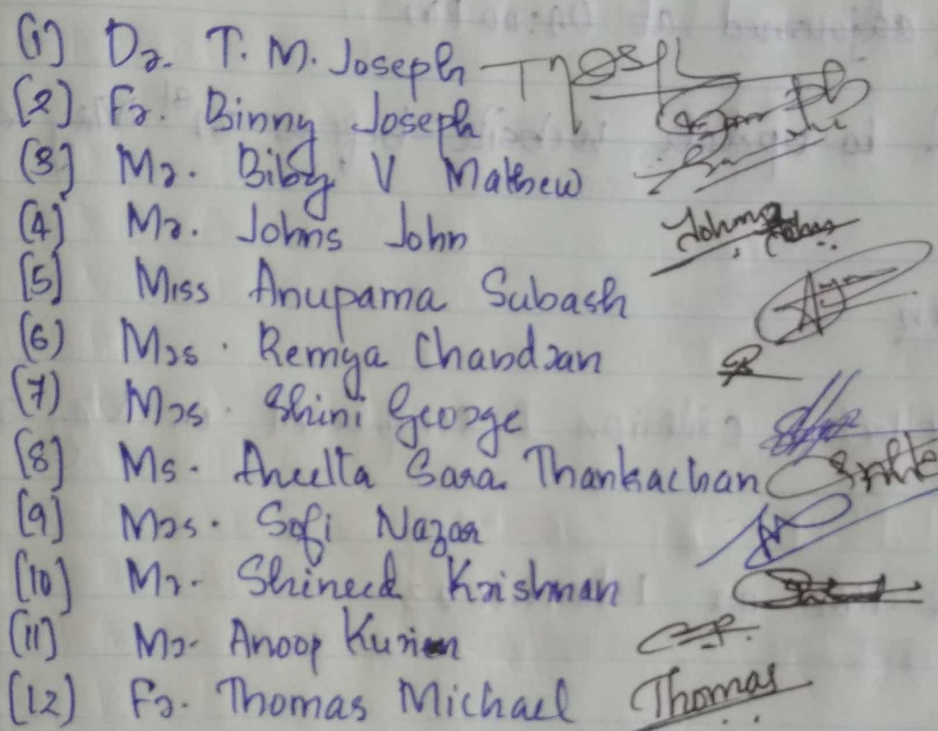 (1) Dr. T. M. Joseph
(2) Fr. Binny Joseph
(3) Mr. Biby V Mathew
(4) Mr. Johns John
(5) Miss Anupama Subash
(6) Mrs. Remya Chandran
(7) Mrs. Shini George
(8) Ms. Aneelta Sara Thankachan
(9) Mrs. Sofi Nazar
(10) Mr. Shineed Krishnan
(11) Mr. Anoop Kurien
(12) Fr. Thomas Michael Thomas